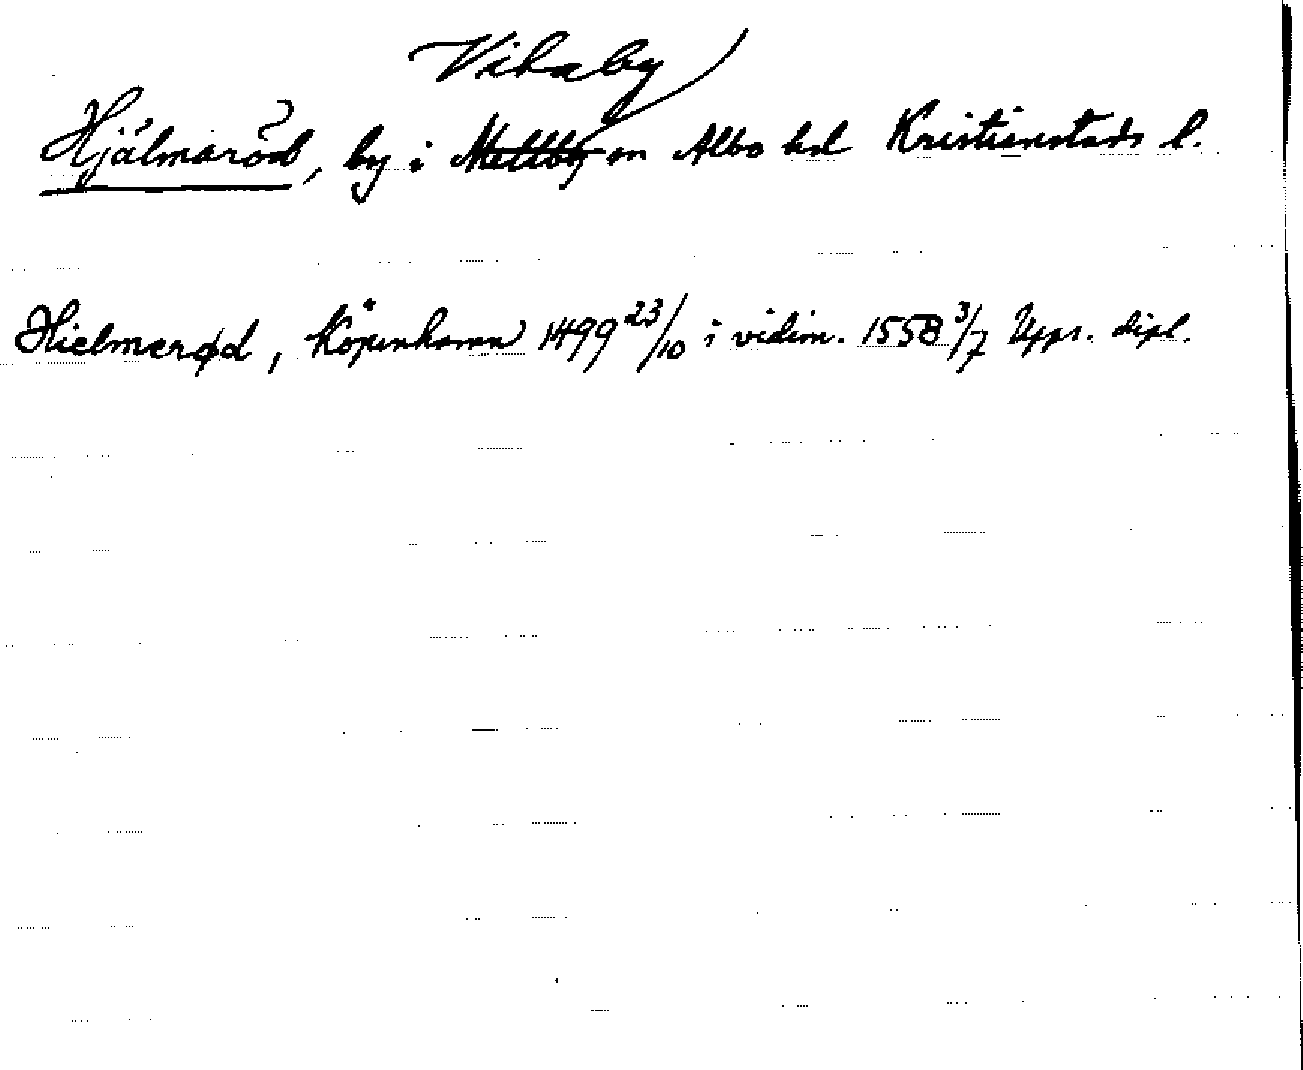 Vikaby
Hjälmaröd, by i Mellby sn Albo hd Kristianstads l.
Hielmerød, Köpenhamn 1499 23/10 i vidim. 1558 3/7 Upps. dipl.